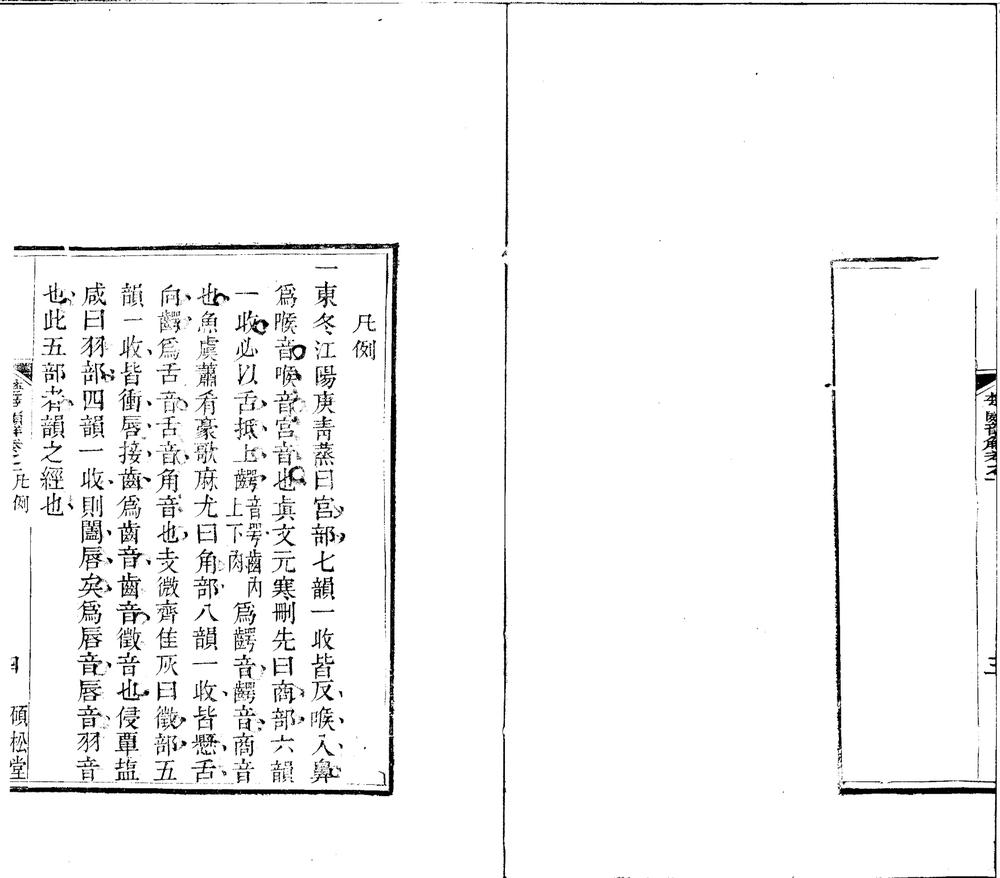 凡例
一東冬江陽庚青蒸曰宮部七韻一收皆反喉入鼻
爲喉音喉音宮音也眞文元寒刪先曰商部六韻
一收必以舌抵上齶音咢齒內上下肉爲齶音齶音商音
也魚虞蕭肴豪歌麻尤曰角部八韻一收皆懸舌
向齶爲舌音舌音角音也支微齊佳灰曰徵部五
韻一收皆衝唇接齒爲齒音齒音徵音也侵覃塩
咸曰羽部四韻一收則闔唇矣爲唇音唇音羽音
也此五部者韻之經也
卷之二凡例
四
碩松堂
三